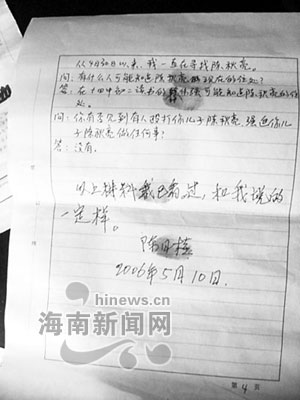 从4月30日以来，我一直在寻找陈秋亮。
问：有什么人可能知道陈秋亮现在的住处？
答：在十四中初二读书的可能知道陈秋亮的住
处。
问：你有否见到有人殴打你儿子陈秋亮，强迫你儿
子陈秋亮做任何事？
答：没有。
以上材料我已看过，和我说的
一定样。
陈月桂
2006年5月10日.
hinews.cn
海南新闻网
第4页